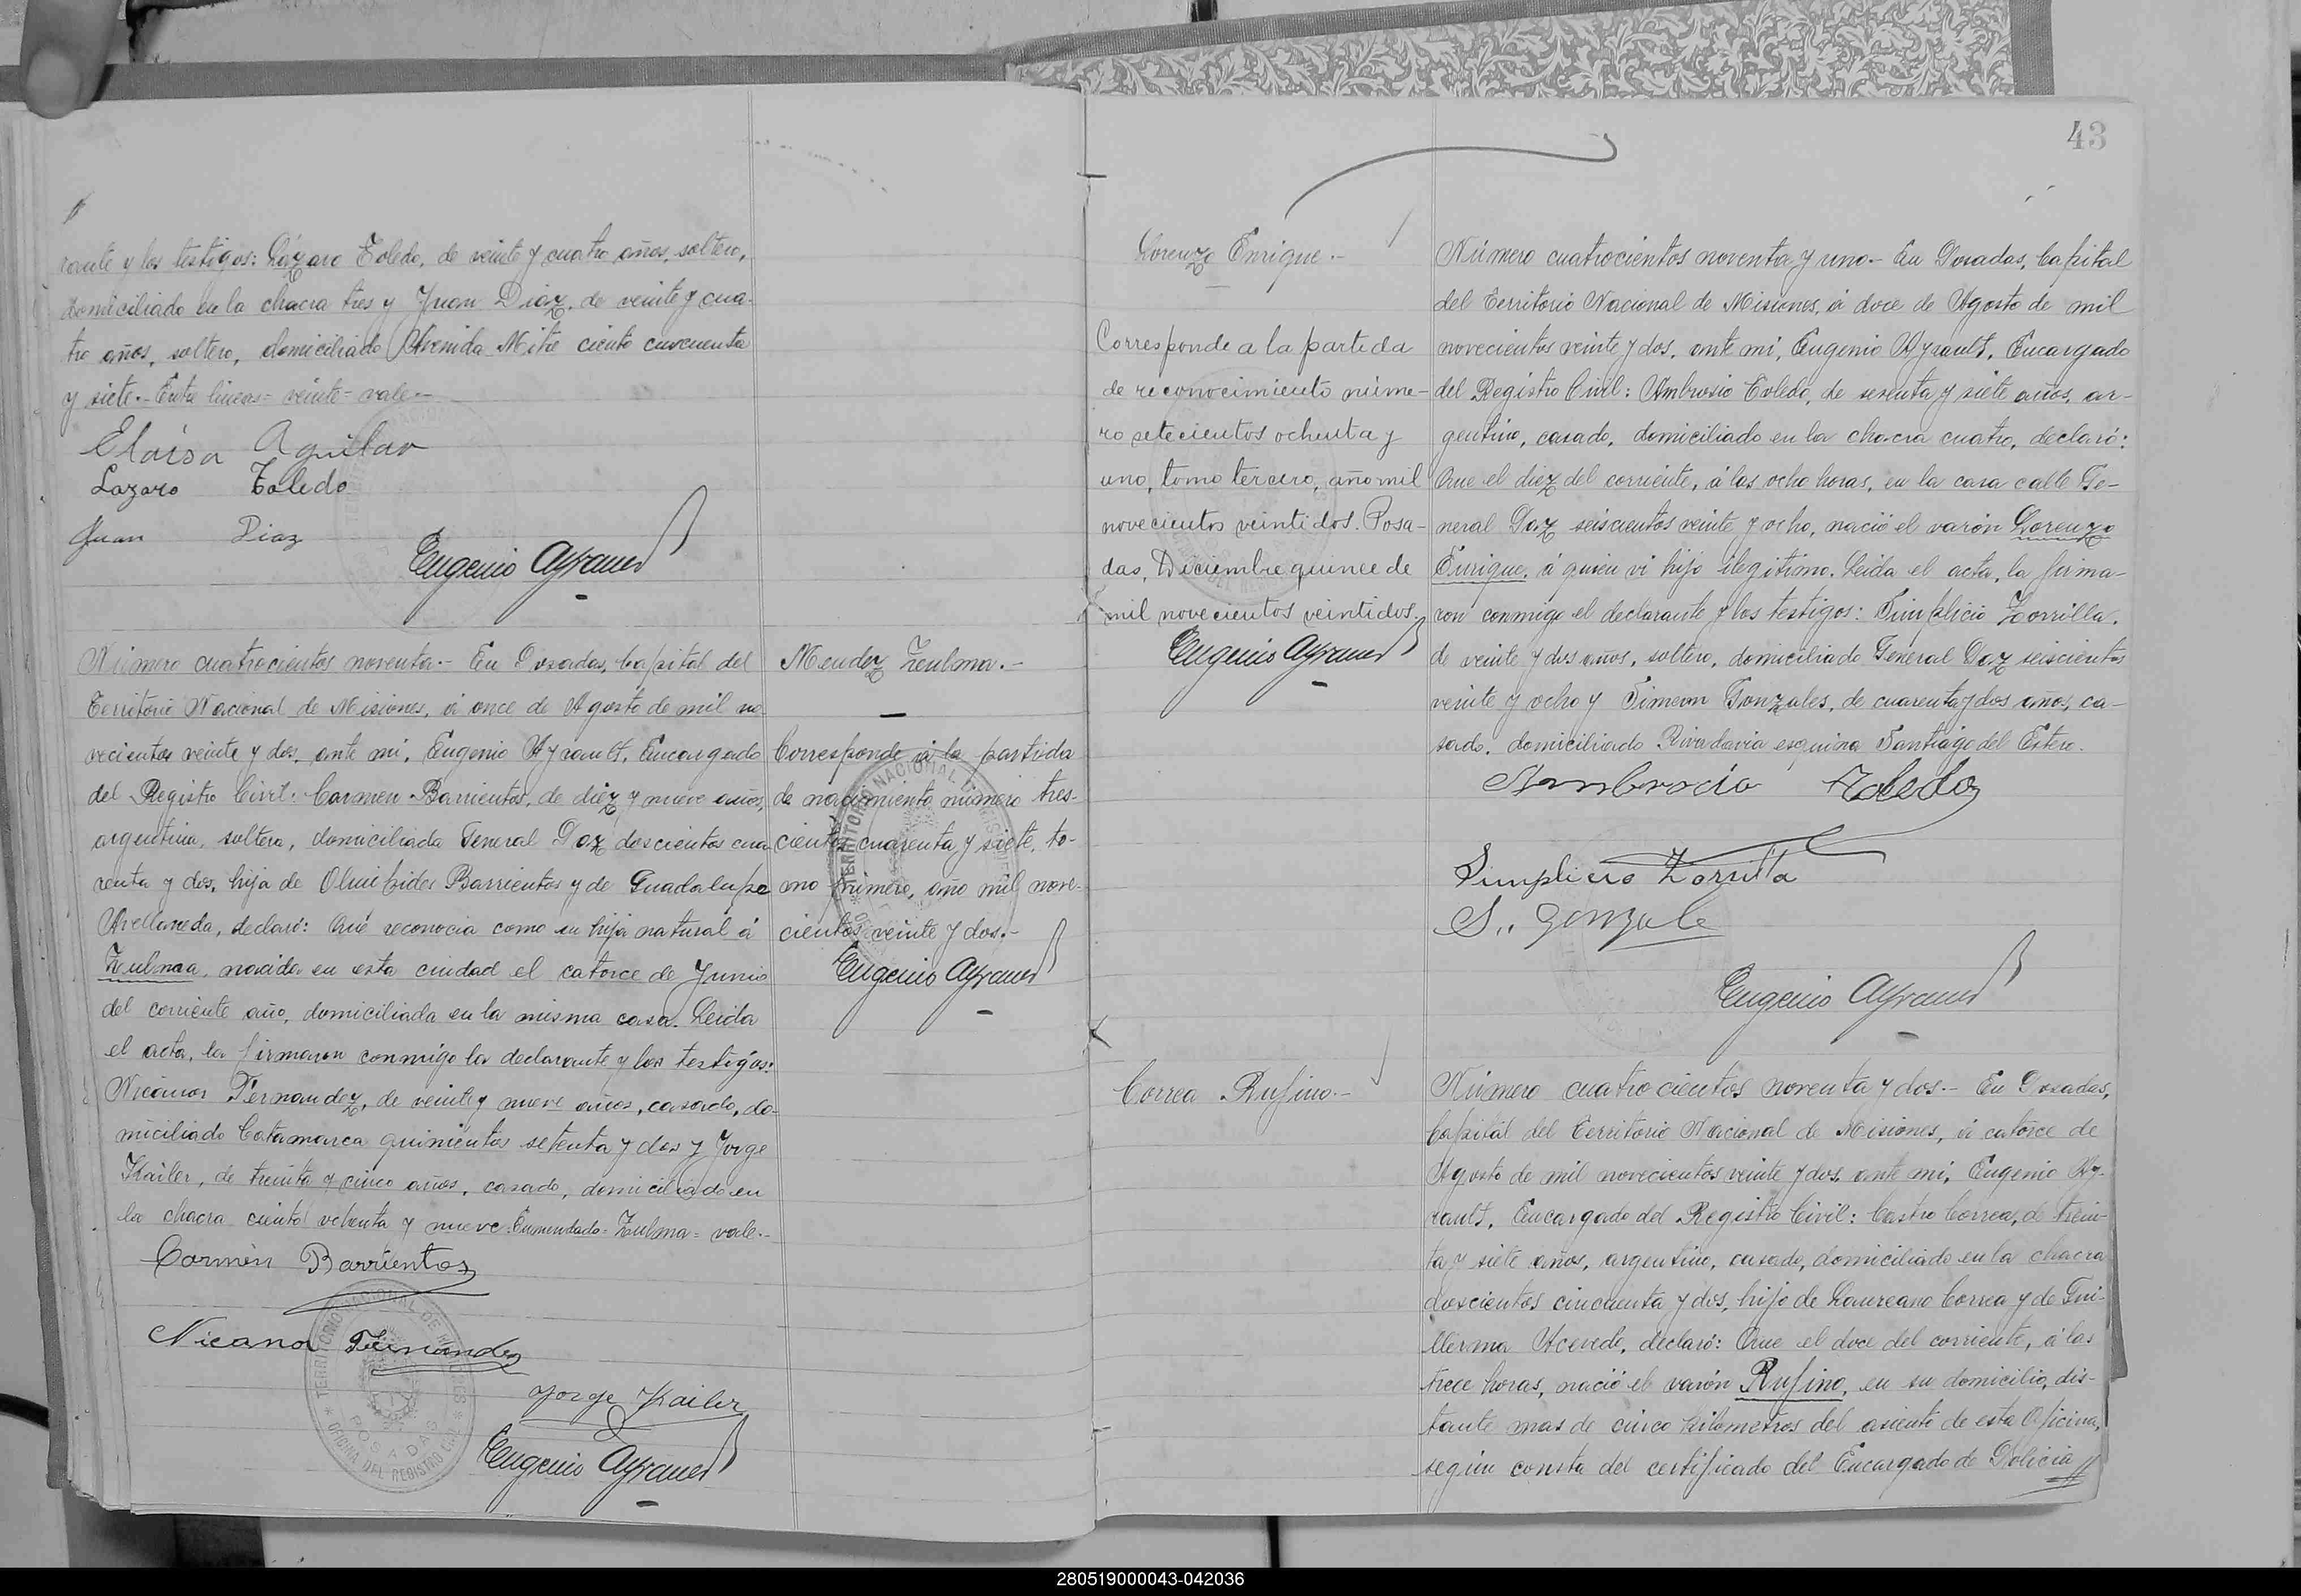 rante y los testigos: Lázaro Toledo, de veinte y cuatro años, soltero,
domiciliado en la chacra tres y Juan Diaz, de veinte y cua-
tro años, soltero, domiciliado Avenida Mitre ciento cincuenta
y siete.- Entre lineas= veinte= vale.-
Elaisa Aguilar
Lazaro Toledo
Juan Diaz
Eugenio Ayrault
Número cuatrocientos noventa.- En Posadas, Capital del
Territorio Nacional de Misiones, á once de Agosto de mil no-
vecientos veinte y dos, ante mi, Eugenio Ayrault, Encargado
del Registro Civil: Carmen Barrientos, de diez y nueve años,
argentina, soltera, domiciliada General Paz doscientos cua
renta y dos, hija de Olimpides Barrientos y de Guadalupe
Avellaneda, declaró: Que reconocia como su hija natural á
Zulmaa, nacida en esta ciudad el catorce de Junio
del corriente año, domiciliada en la misma casa. Leida
el acta, la firmaron conmigo la declarante y los testigos:
Nicanor Fernandez, de veinte y nueve años, casado, do-
miciliado Catamarca quinientos setenta y dos y Jorge
Kailer, de treinta y cinco años, casado, domiciliado en
la chacra ciento ochenta y nueve. Enmendado= Zulma= vale.-
Carmen Barrientos
Nicanor Fernandez
Jorge Kailer
Eugenio Ayrault
TERRITORIO NACIONAL DE MISIONES
POSADAS
OFICINA DEL REGISTRO CIVIL
Mendez Zulma.-
Corresponde á la partida
de nacimiento número tres-
cientos cuarenta y siete, to-
mo primero, año mil nove-
cientos veinte y dos.-
Eugenio Ayrault
43
Lorenzo Enrique.-
Corresponde a la partida
de reconocimiento núme-
ro setecientos ochenta y
uno, tomo tercero, año mil
novecientos veintidos. Posa-
das, Diciembre quince de
mil novecientos veintidos.
Eugenio Ayrault
Número cuatrocientos noventa y uno.- En Posadas, Capital
del Territorio Nacional de Misiones, á doce de Agosto de mil
novecientos veinte y dos, ante mi, Eugenio Ayrault, Encargado
del Registro Civil: Ambrosio Toledo, de sesenta y siete años, ar-
gentino, casado, domiciliado en la chacra cuatro, declaró:
Que el diez del corriente, á las ocho horas, en la casa calle Ge-
neral Paz seiscientos veinte y ocho, nació el varón Lorenzo
Enrique, á quien vi hijo ilegitimo. Leida el acta, la firma-
ron conmigo el declarante y los testigos: Simplicio Zorrilla,
de veinte y dos años, soltero, domiciliado General Paz seiscientos
veinte y ocho y Simeon Gonzales, de cuarenta y dos años, ca-
sado, domiciliado Rivadavia esquina Santiago del Estero.
Ambrocio Toledo
Simplicio Zorrilla
S. Gonzale
Eugenio Ayrault
Correa Rufino.-
Número cuatrocientos noventa y dos.- En Posadas,
Capital del Territorio Nacional de Misiones, á catorce de
Agosto de mil novecientos veinte y dos, ante mi, Eugenio Ay-
rault, Encargado del Registro Civil: Castro Correa, de trein-
ta y siete años, argentino, casado, domiciliado en la chacra
doscientos cincuenta y dos, hijo de Laureano Correa y de Gui-
llerma Acevedo, declaró: Que el doce del corriente, á las
trece horas, nació el varón Rufino, en su domicilio, dis-
tante mas de cinco kilometros del asiento de esta Oficina,
según consta del certificado del Encargado de Policia
280519000043-042036